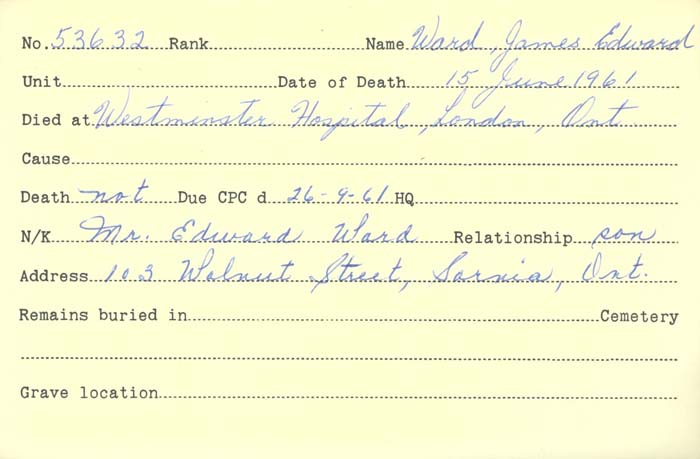 No. 53632 Rank Name Ward, James Edward
Unit Date of Death 15 June 1961
Died at Westminster Hospital, London, Ont.
Cause
Death not Due CPC d 26-9-61 HQ
N/K Mr. Edward Ward Relationship son
Address 103 Walnut Street, Sarnia, Ont.
Remains buried in Cemetery
Grave location